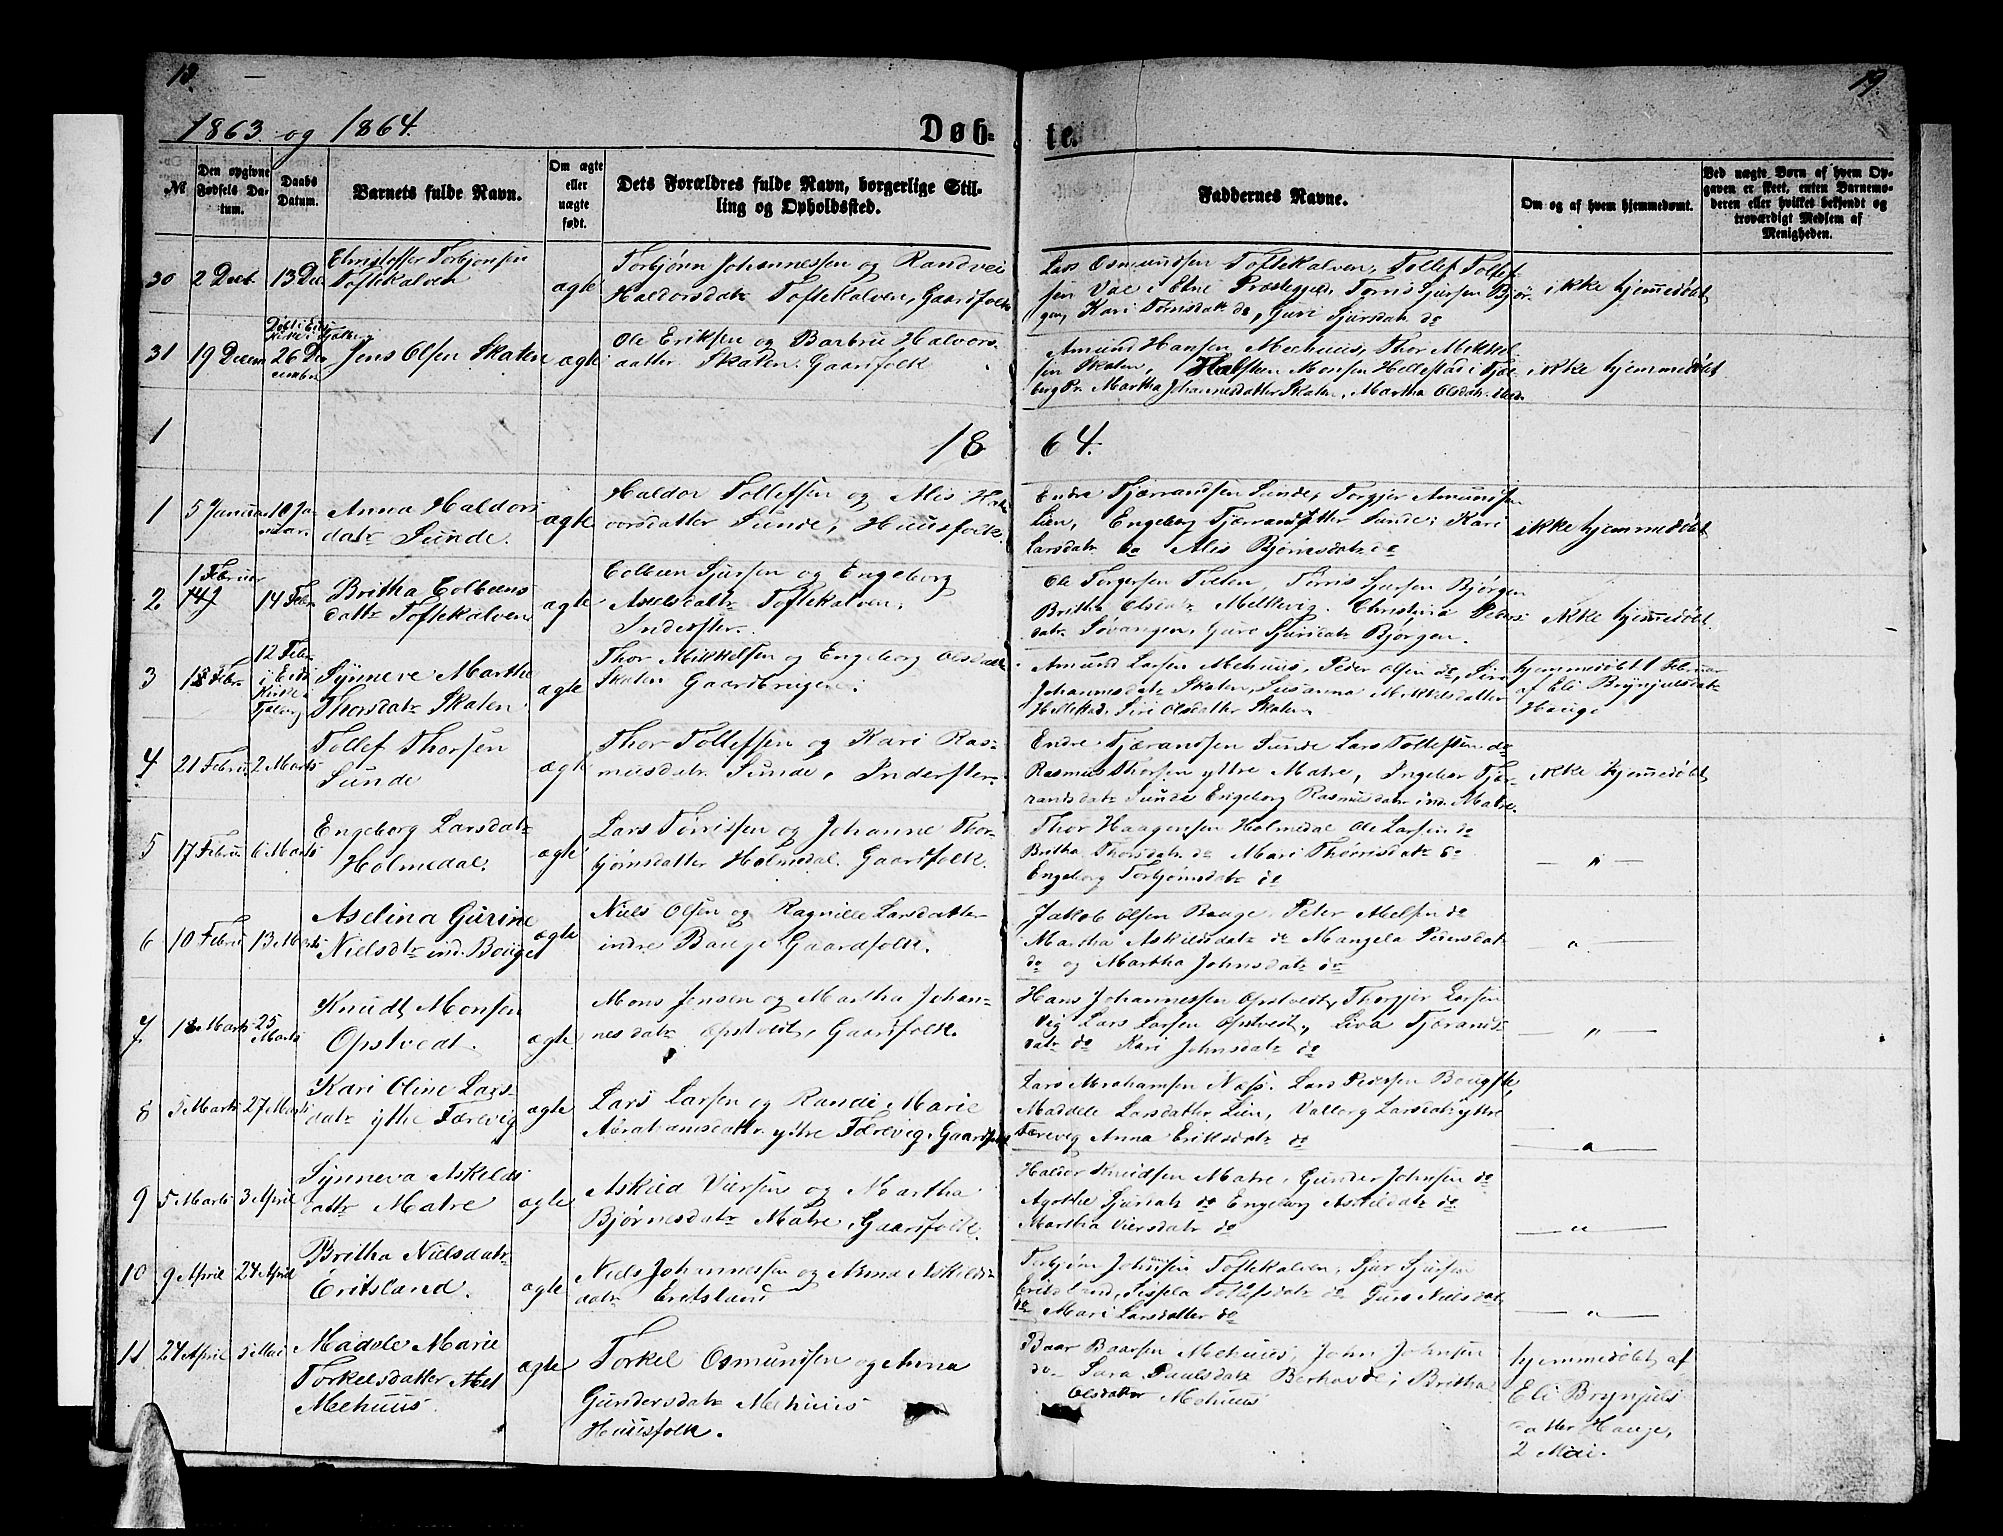 19
1863 og 1864.
Døb-
te.
№
Den opgivne Fødsels Datum.
Daabs Datum.
Barnets fulde Navn.
Om ægte eller uægte født.
Dets Forældres fulde Navn, borgerlige Stilling og Opholdssted.
Faddernes Navne.
Om og af hvem hjemmedømt.
Ved uægte Børn af hvem Opgaven er skeet, enten Barnemoderen eller hvilket bekjendt og troværdigt Medlem af Menigheden.
30 2 Decb 13 Dec
Christoffer Torbjønsen
Toftekalven
ægte
Torbjørn Johannessen og Randvei
Haldorsdatr Toftekalven, Gaardfolk
Lars Osmundsen Toftekalven, Tollef Tollef
sen Vae i Etne Præstegjeld, Tørris Sjursen Bjør
gen, Kari Tørrisdatr do, Guri Sjursdatr do
ikke hjemmedøbt
31 19 Decem 26 De
cember
Jens Olsen Skaten
ægte
Ole Eriksen og Barbru Halvors
datter Skaten. Gaardfolk
Amund Hansen Mehuus, Thor Mikkel
sen Skaten, Halsteen Monsen Hellestad i Fjæl
berg Pr. Martha Johannesdatter Skaten, Martha Olsdatr
ikke hjemmedøbt
1
18 64.
1 5 Januar 10 Ja
nuar.
Anna Haldors
datr Sunde.
ægte
Haldor Tollefsen og Alis Hal
vorsdatter Sunde, Huusfolk.
Endre Tjærandsen Sunde, Torgjer Amundsen
Lien, Engeborg Tjærandsdatter Sunde, Kari
Larsdatr do Alis Bjørnsdatr do
ikke hjemmedøbt
2 1 Februar 14 Feb.
Britha Colbeens
datr Toftekalven
ægte
Colbeen Sjursen og Engeborg
Axelsdatr Toftekalven.
Inderster.
Ole Torgersen Tveten, Tørris Sjursen Bjørgen
Britha Olsdatr Melkevig. Christina Peders
datr Søvangen, Guri Sjursdatr Bjørgen.
ikke hjemmedøbt.
3 Febr 12 Feb.
Synneve Martha
Thorsdatr Skaten.
ægte
Thor Mikkelsen og Engeborg Olsdatr
Skaten Gaardbruger.
Amund Larsen Mehuus, Peder Olsen do, Siri
Johannesdatr Skaten, Susanna Mikkelsdatter
Hellestad, Siri Olsdatter Skaten.
hjemmedøbt 1 Februar
af Eli Brynjulsdatr
Hauge
4 21 Febru 2 Marts
Tollef Thorsen
Sunde
ægte
Thor Tollefsen og Kari Ras-
musdatr Sunde, Inderster.
Endre Tjærandsen Sunde Lars Tollefsen do
Rasmus Thorsen ytre Matre, Ingebor Tjæ-
randsdatr Sunde Engeborg Rasmusdatr ind. Matre.
ikke hjemmedøbt
5 17 Febru 6 Marts
Engeborg Larsdatr
Holmedal.
ægte
Lars Tørrissen og Johanne Thor-
bjørnsdatter Holmedal. Gaardfolk.
Thor Haagensen Holmedal Ole Larsen do
Britha Thorsdatr do Mari Thørrisdatr do
Engeborg Torbjørnsdatr do
— " —
6 10 Febru 13 Marts
Aselina Gurine
Nielsdtr ind. Bouge
ægte
Niels Olsen og Ragnilde Larsdatter
indre Bauge Gaardfolk.
Jakob Olsen Bauge, Peter do
Martha Askildsdatr do Mangela Pedersdat
do og Martha Johnsdatr do
— " —
7 Marts 25
Marts
Knudt Monsen
Opstvedt.
ægte
Mons Jensen og Martha Johan-
nesdatr Opstvedt, Gaardfolk.
Hans Johannessen Opstvedt, Thorgjer Larsen
Vig Lars Larsen Opstvedt, Siva Tjærands
datr do Kari Johnsdatr do
— " —
8 5 Marts 27 Marts
Kari Oline Lars-
datr ytre Færevig
ægte
Lars Larsen og Randi Marie
Abrahamsdattr ytre Færevig, Gaardfolk
Lars Abrahamsen Næss. Lars Pedersen
Maddele Larsdatter Lien, Valborg Larsdatr yttre
Færevig Anna Eriksdatr do
— " —
9 5 Marts 3 April
Synneva Askilds
datr Matre
ægte
Askild Viersen og Martha
Bjørnesdatr Matre, Gaardfolk.
Haldor Knudsen Matre, Gunder Johnsen do
Agathe Sjursdatr do Engeborg Askildsdatr do
Martha Viersdatr do
— " —
10 9 April 24 April
Britha Nielsdatr
Eritsland.
ægte
Niels Johannessen og Anna Askilds-
datr Eritsland
Torbjørn Johnsen Toftekalven, Sjur Sjursen
Eritsland, Sissela Tollefsdatr do Guro Nielsdatr
do Mari Larsdatter do
— " —
11 24 April 5 Mai
Madele Marie
Torkelsdatter
Mehuus.
ægte
Torkel Osmundsen og Anna
Gundersdatr Mehuus
Huusfolk.
Baar Baarsen Mehuus, John Johnsen
do Sara Paulsdatr Berhovde, Britha
Olsdatter Mehuus
hjemmedøbt af
Eli Brynjuls
datter Hauge,
2 Mai.